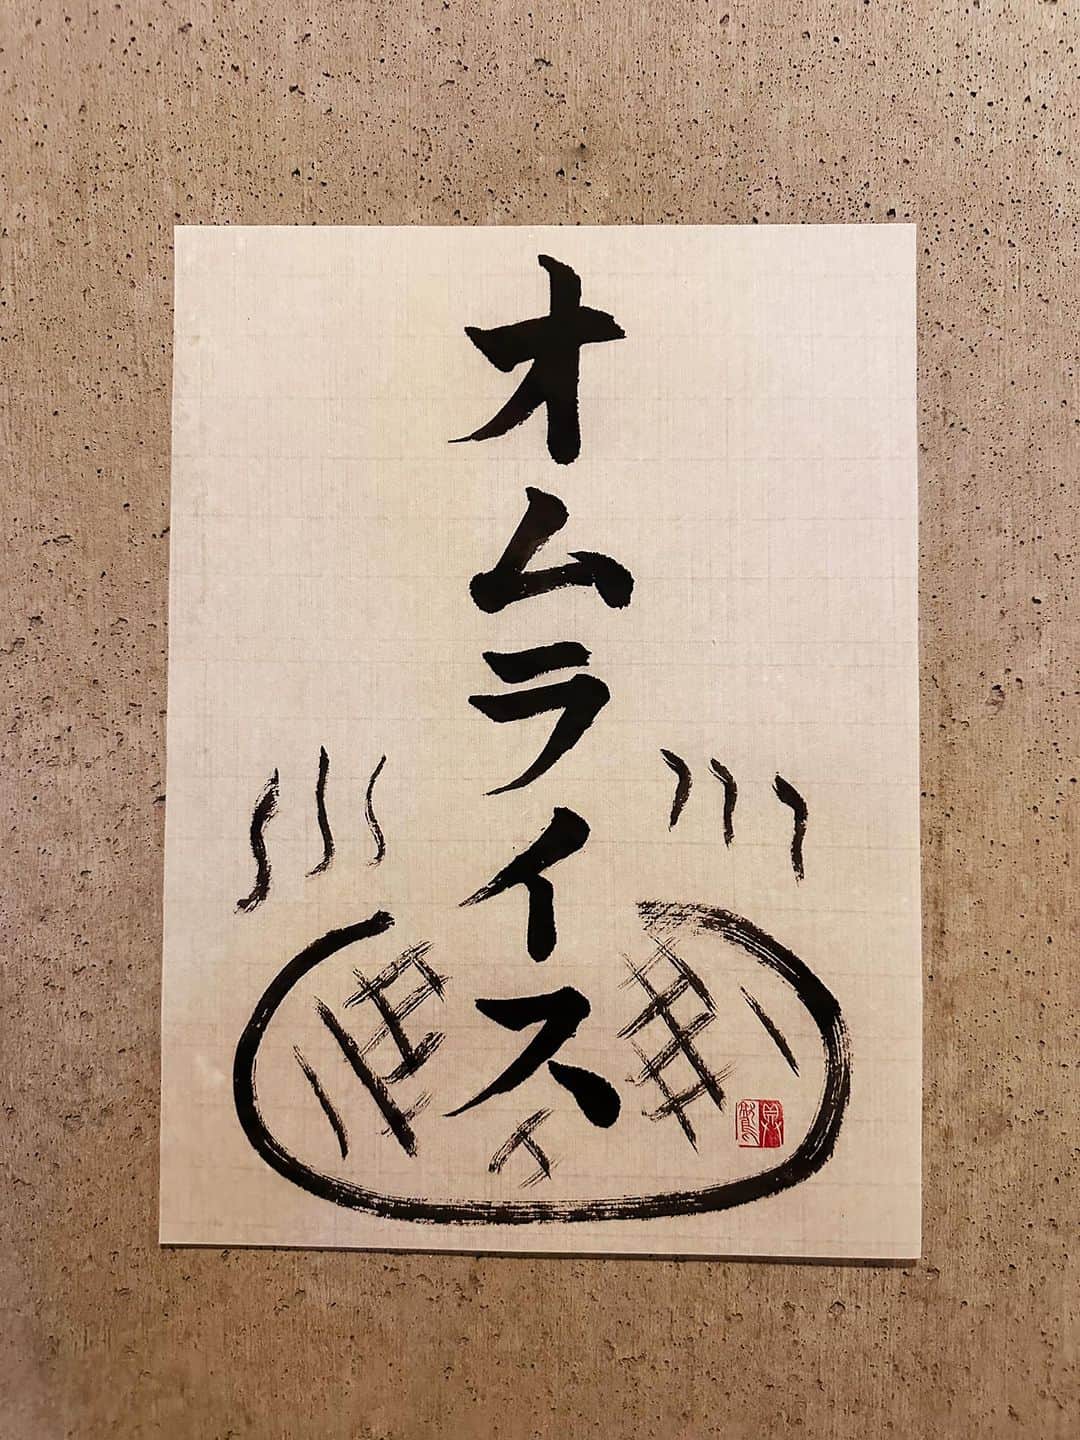 オムライス